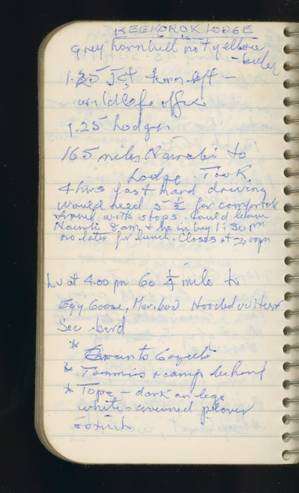 KEEKOROK LODGE
Grey hornbill not yellow
-billed
1.25 Jct turn left -
wildlife office
1.25 Lodge
165 miles Nairobi to
Lodge. Took
4 hrs fast hard driving
would need 5 for comfortable
travel with stops. Could leave
Nairobi 8 am, & be in by 1:30 pm
no later for lunch. Closes at
Lv at 4.00 pm Go 1/4 mile to
Egy Goose, Marabou Hooded vulture
Sec. bird
* Grants Gazelle
* Tommies + camp behind
* Topi - dark on legs
white-crowned plover
ostrich